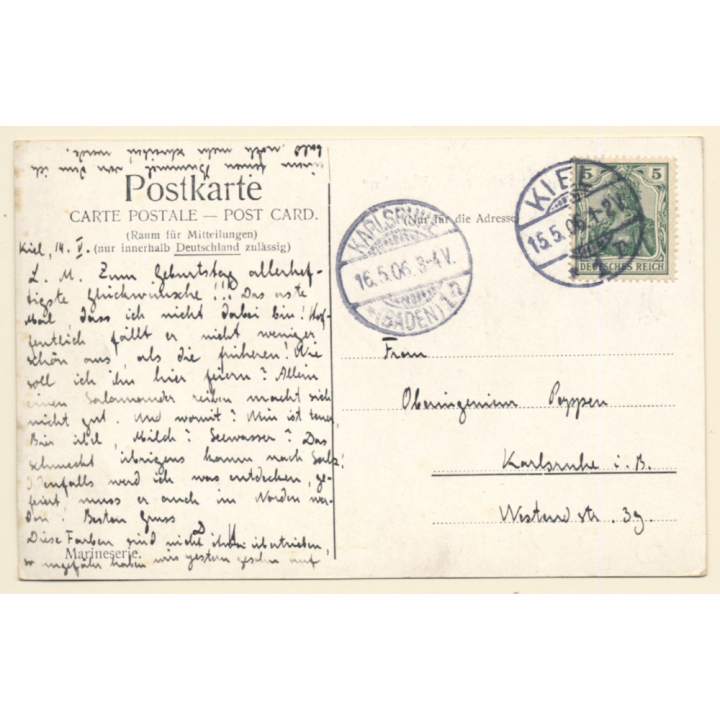 Postkarte
CARTE POSTALE — POST CARD.
(Raum für Mitteilungen)
(nur innerhalb Deutschland zulässig)
Kiel, 14. V.
L. M. Zum Geburtstag allerhef-
tigste Glückwünsche!!! Das erste
Mal, dass ich nicht dabei bin! Hof-
fentlich fällt er nicht weniger
schön aus, als die früheren! Wie
soll ich ihn hier feiern? Allein
einen Salamander reiben macht sich
nicht gut. Und womit? Wein ist teuer,
Bier Milch? Seewasser? Das
schmeckt übrigens kaum nach Salz!
Jedenfalls werd ich was entdecken, ge-
feiert muss er auch im Norden wer-
den! Besten Gruss
Diese Farben sind nicht übertrieben,
ungefähr haben wir's gestern gesehen auf
Marineserie.
(Nur für die Adresse
KARLSRUHE
16.5.06. 3-4V.
(BADEN) 1
KIEL
15.5.06. 1-2V.
1
5 5
DEUTSCHES REICH
Frau
Oberingenieur Poppen
Karlsruhe i. B.
Westendstr. 39.